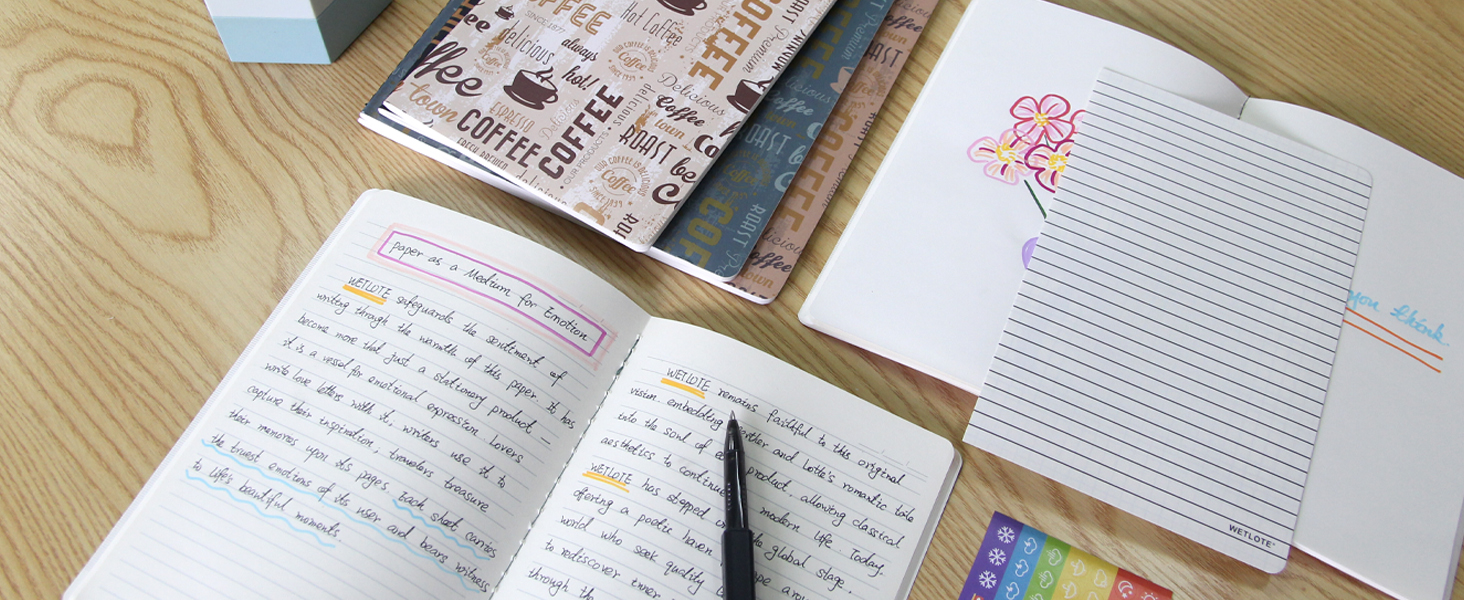 COFFEE
SINCE 1877
Hot Coffee
delicious
always
hot!
Coffee
ESPRESSO
Delicious
town
COFFEE
COFFEE
delicious
OUR PRODUCTS
Delicious
Coffee
town
ROAST
OUR COFFEE IS DELICIOUS
Coffee
SINCE 1939
COFFEE
ROAST
Premium
Premium
ROAST
Coffee
ROAST
Delicious
COFFEE
Coffee
Paper as a Medium for Emotion
WETLOTE safeguards the sentiment of
writing through the warmth of this paper. It has
become more that just a stationary product —
it is a vessel for emotional expression. Lovers
write love letters with it, writers use it to
capture their inspiration, travelers treasure
their memories upon its pages. Each sheet carries
the truest emotions of its user and bears witness
to life's beautiful moments.
WETLOTE remains faithful to this original
vision. embedding and Lotte's romantic tale
into the soul of product, allowing classical
aesthetics to continue modern life. Today,
WETLOTE has stepped the global stage,
offering a poetic haven
world who seek quality
to rediscover inner
through the
you think
WETLOTE®